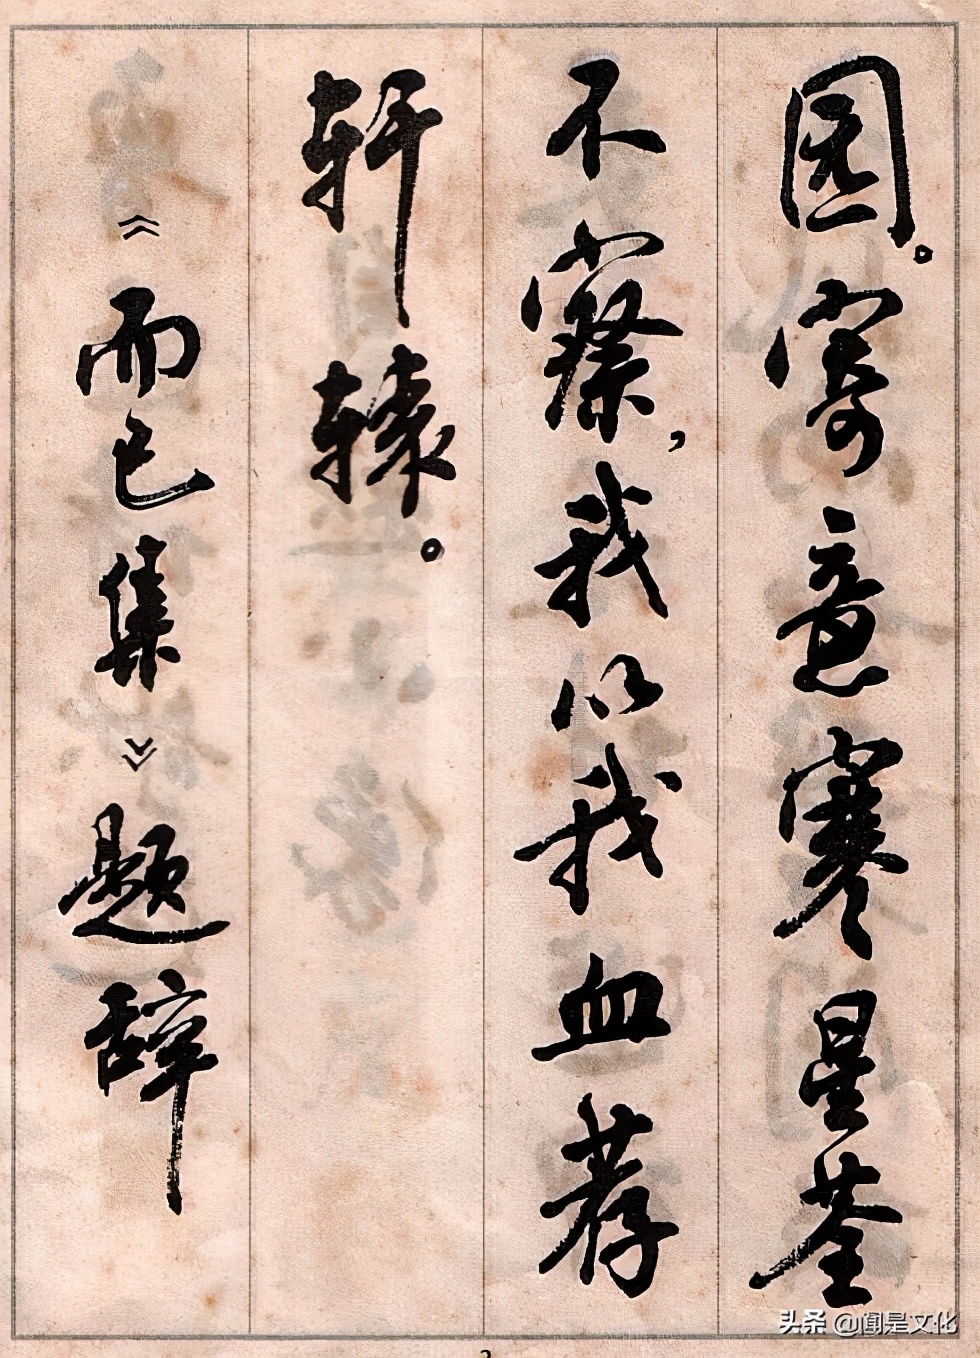 園。寄意寒星荃
不察，我以我血荐
轩辕。
《而已集》题辞
头条 @闻是文化